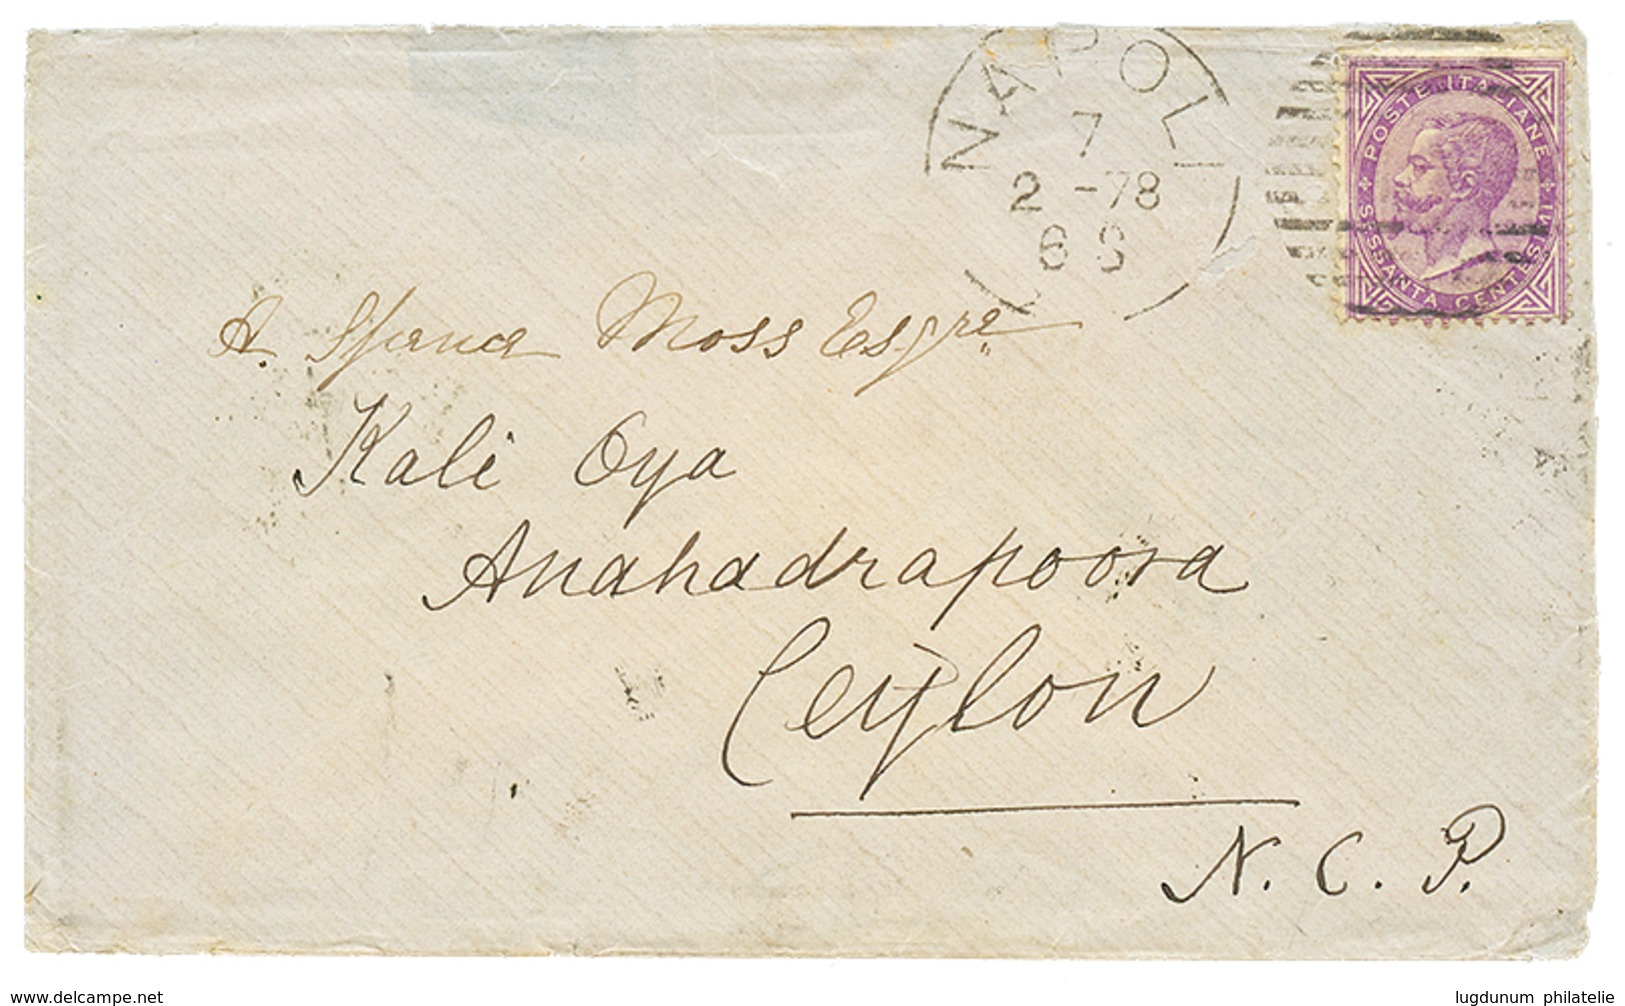 NAPOLI
7
2 -78
6 S
POSTE ITALIANE
SESSANTA CENTESIMI
A. Moss Esqre
Kali Oya
Anahadrapoora
Ceylon
N. C. P.
www.delcampe.net
lugdunum philatelie